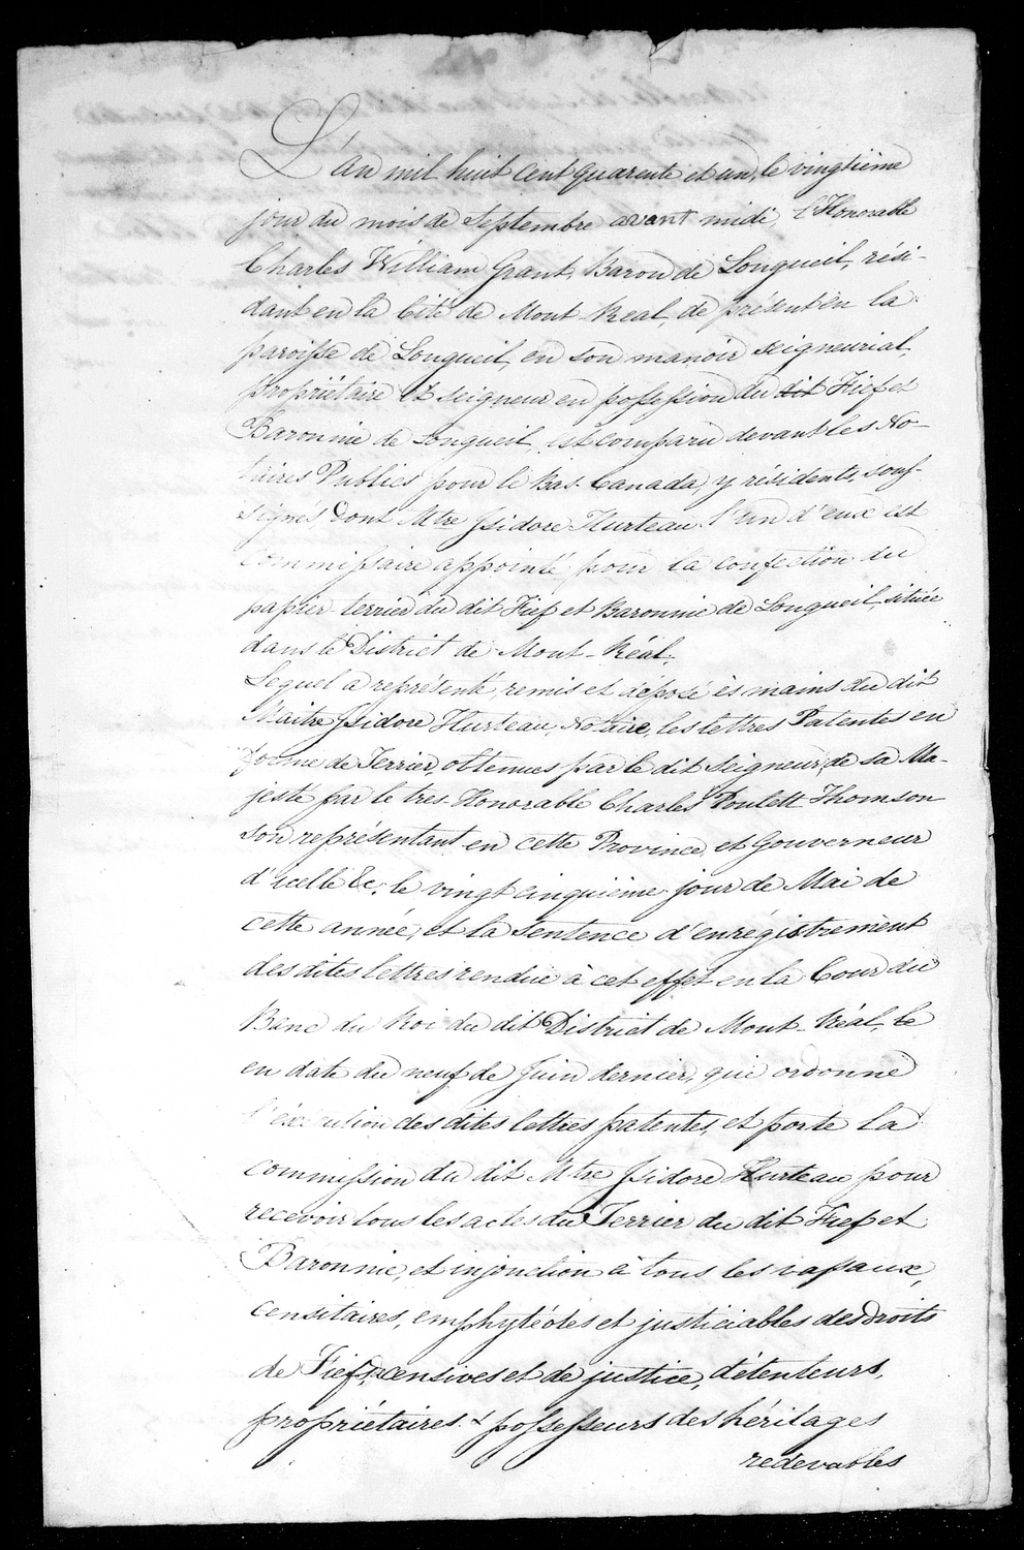 L'An mil huit cent quarente et un, le vingtième
jour du mois de Septembre avant midi, l'Honorable
Charles William Grant, Baron de Longueil, rési-
dant en la Cité de Mont-Réal, de présent en la
paroisse de Longueil, en son manoir seigneurial,
propriétaire & seigneur en possession du dit Fief et
Baronnie de Longueil, est comparu devant les No-
taires Publics pour le Bas-Canada, y résidents, sous-
signés, dont Mtre Isidore Hurteau l'un d'eux est
commissaire appointé pour la confection du
papier terrier du dit Fief et Baronnie de Longueil, située
dans le District de Mont-Réal.
Lequel a représenté, remis et déposé ès mains du dit
Maitre Isidore Hurteau, Notaire, les lettres Patentes en
forme de Terrier, obtenues par le dit Seigneur, de sa Ma-
jesté par le très Honorable Charles Poulett Thomson
son représentant en cette Province, et Gouverneur
d'icelle &c, le vingt cinquième jour de Mai de
cette année, et la Sentence d'enrégistrement
des dites lettres rendue à cet effet en la Cour du
Banc du Roi du dit District de Mont-Réal, le
en date du neuf de Juin dernier, qui ordonne
l'éxécution des dites lettres patentes, et porte la
commission du dit Mtre Isidore Hurteau pour
recevoir tous les actes du Terrier du dit Fief et
Baronnie, et injonction à tous les vassaux,
censitaires, emphytéotes et justiciables des droits
de Fief, censives et de justice, détenteurs,
propriétaires & possesseurs des héritages
redevables